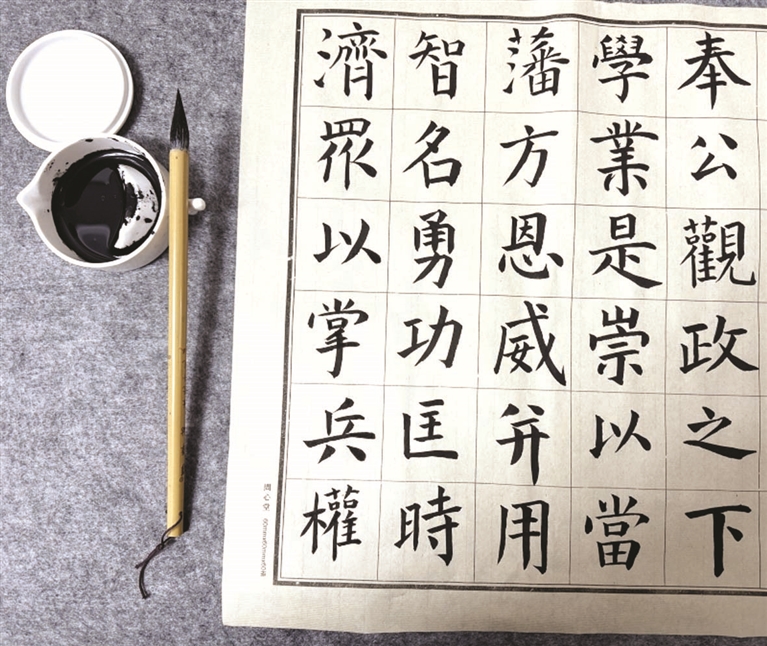 奉公觀政之下
學業是崇以當
藩方恩威并用
智名勇功匡時
濟眾以掌兵權